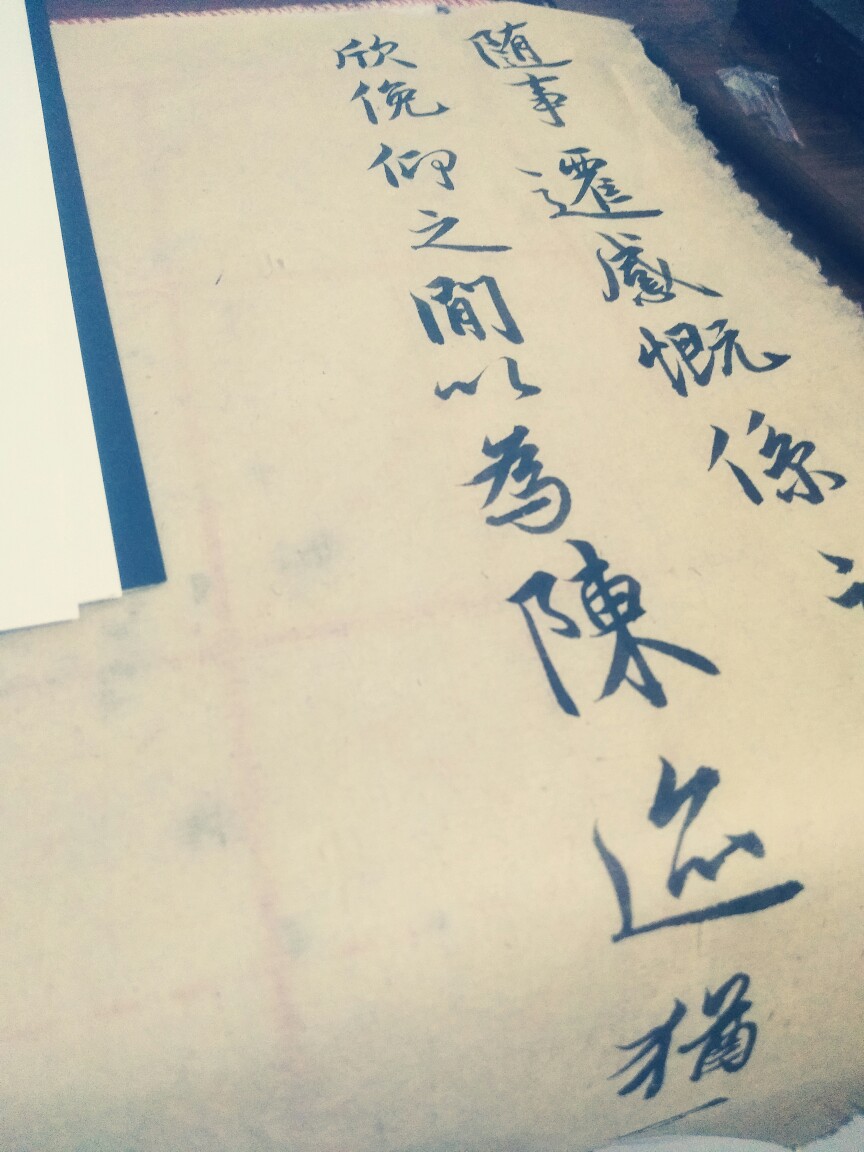 随事遷感慨係
欣俛仰之閒以為陳迹猶